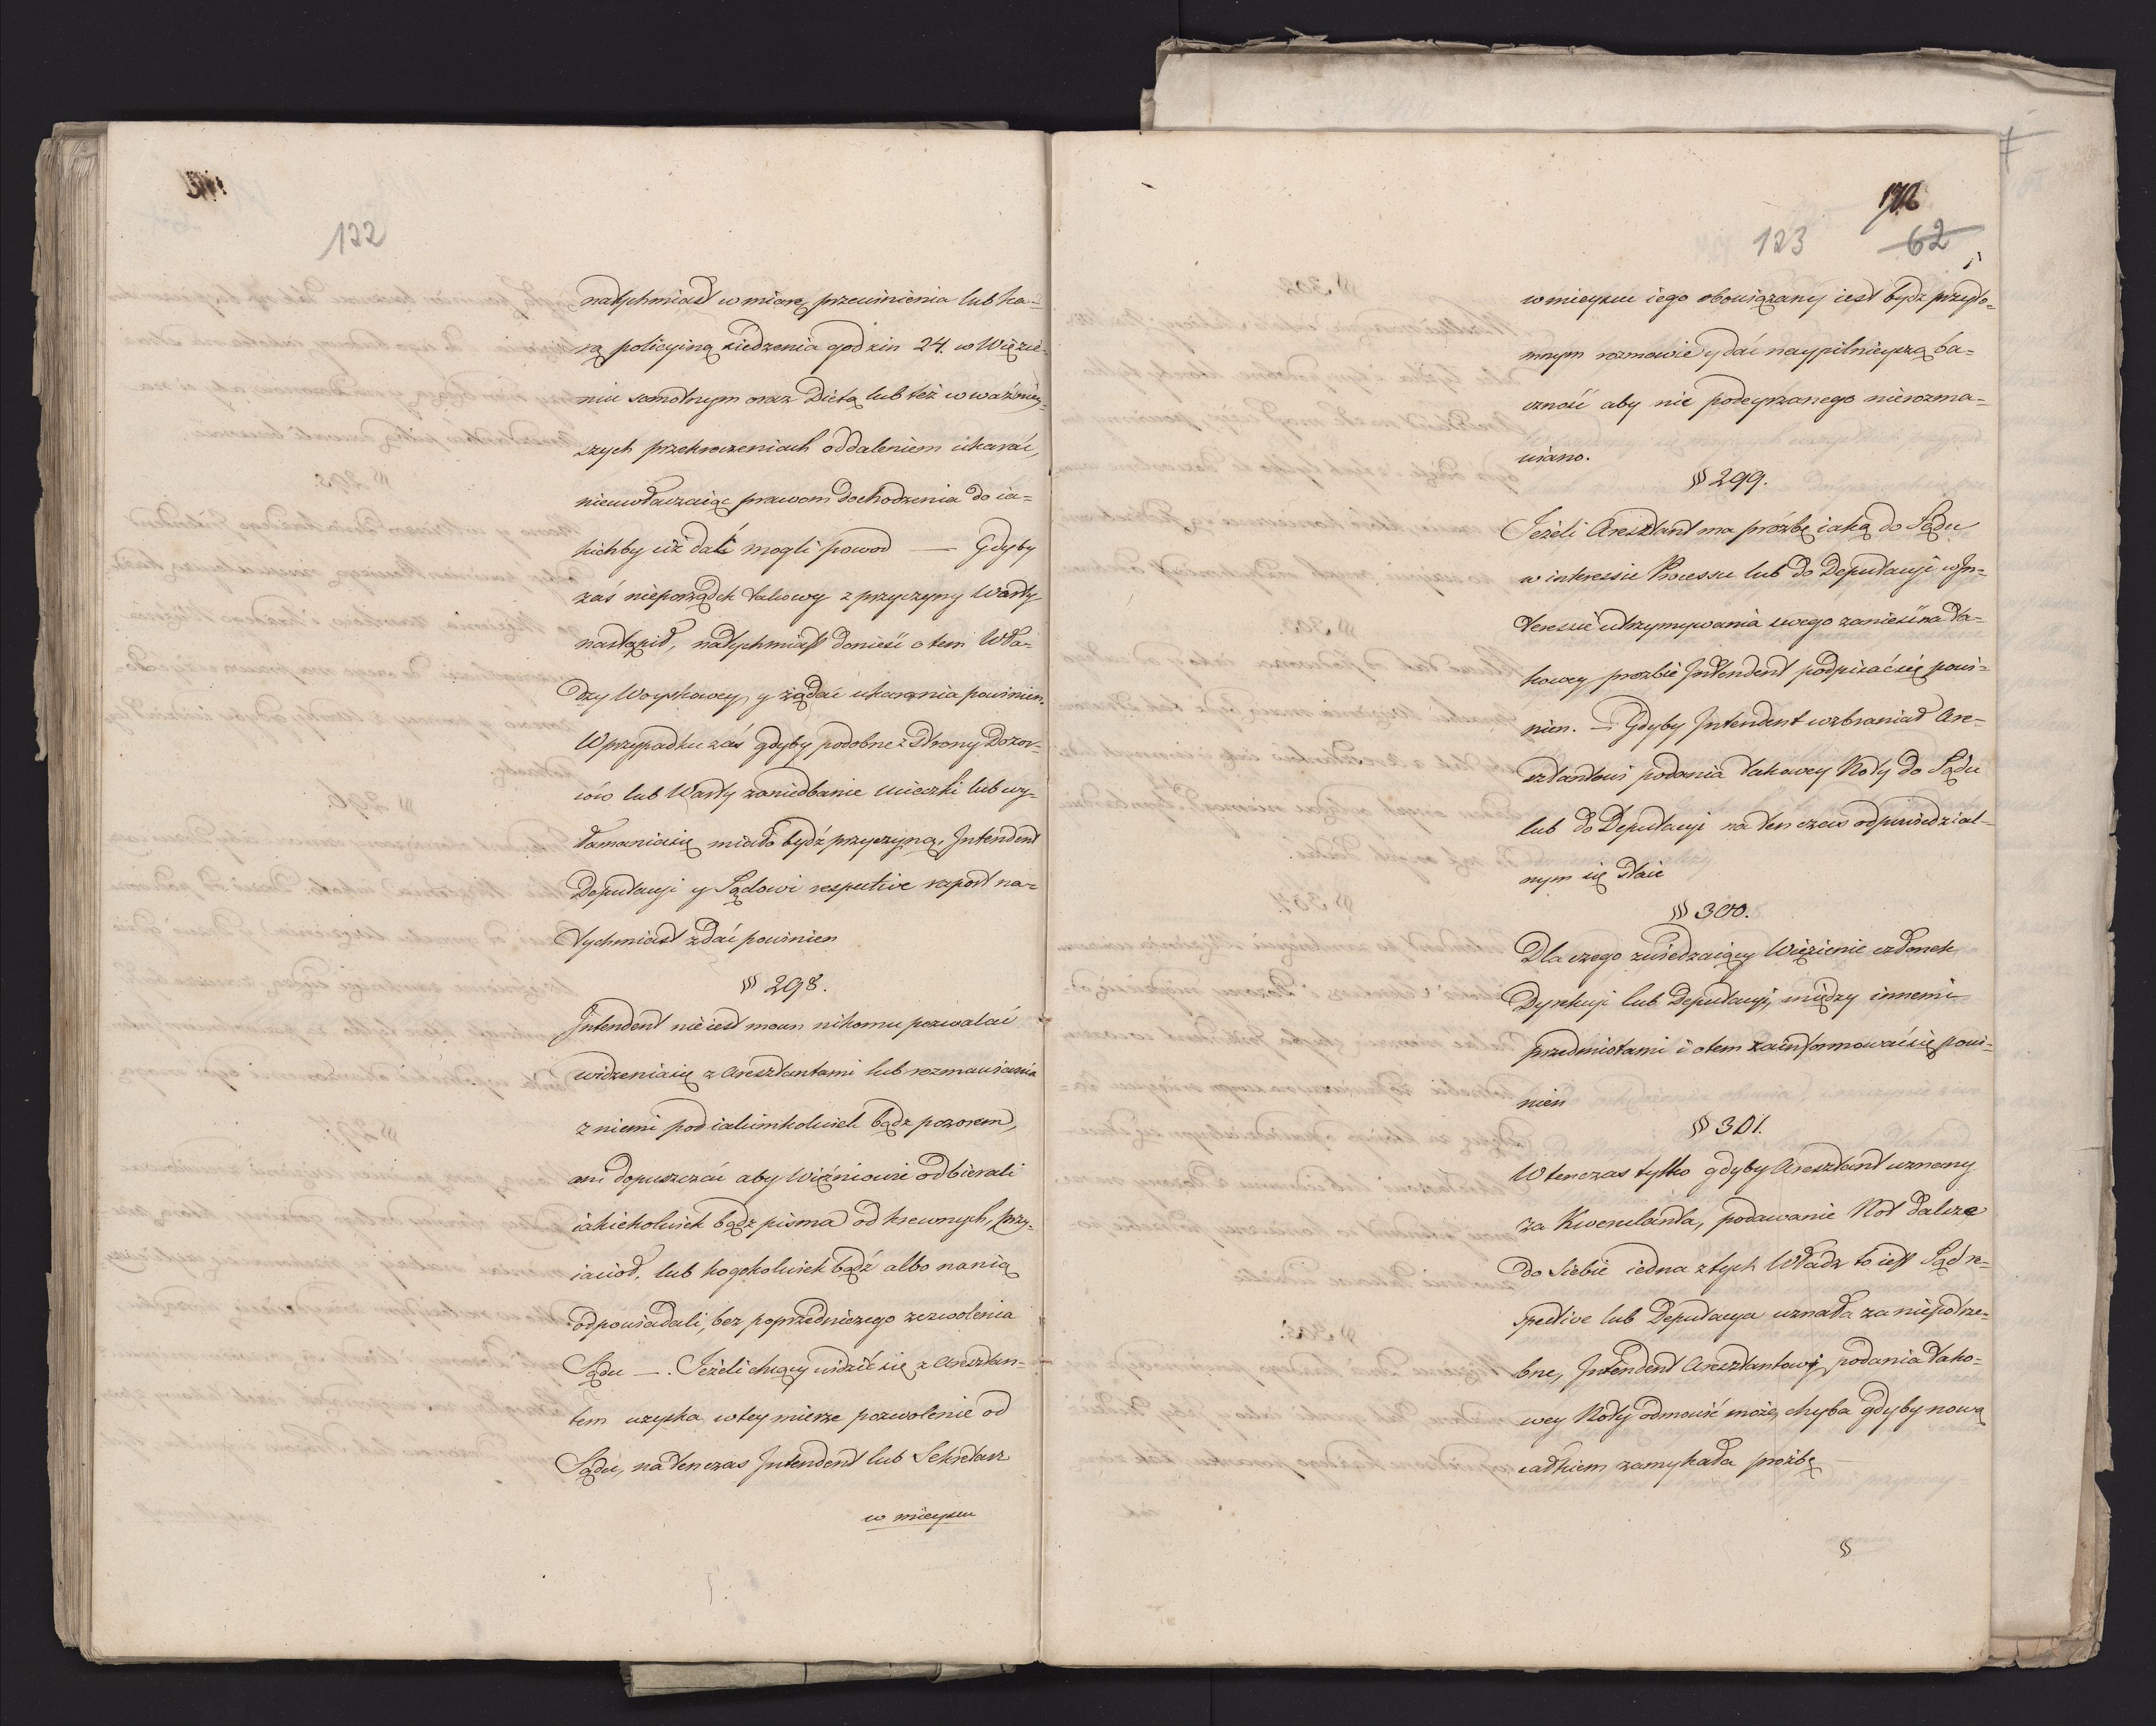 122
natychmiast w miarę przewinienia lub ka=
rą policyiną siedzenia godzin 24. w Więzie=
niu samotnym oraz Dietą lub też w ważniey=
szych przekroczeniach oddaleniem ukarać,
nieuwłaczaiąc prawom dochodzenia do ia=
kichby iuż dali mogli powod — Gdyby
zaś nieporządek takowy z przyczyny Warty
nastąpił, natychmiast donieść o tem Wła=
dzy Woyskowey, y żądać ukarania powinien.
W przypadku zaś gdyby podobne z Strony Dozor=
ców lub Warty zaniedbanie ucieczki lub wy=
łamania się miało bydź przyczyną, Intendent
Deputacyi y Sądowi respective raport na=
tychmiast zdać powinien
§ 298.
Intendent nie iest mocen nikomu pozwalać
widzenia się z Aresztantami lub rozmawiania
z niemi pod iakimkolwiek bądz pozorem,
ani dopuszczać aby Więźniowie odbierali
iakiekolwiek bądz pisma od krewnych, przy=
iaciół, lub kogokolwiek bądź albo na nią
odpowiadali, bez poprzedniczego zezwolenia
Sądu —. Jeżeli chcący widzić się z Aresztan=
tem uzyska w tey mierze pozwolenie od
Sądu, na ten czas Intendent lub Sekretarz
w mieyscu
123
62
w mieyscu iego obowiązany iest bydz przyto=
mnym rozmowie y dać naypilnieyszą ba=
czność aby nic podeyrzanego nierozma=
wiano.
§ 299.
Jeżeli Aresztant ma prózbę iaką do Sądu
w interessie Processu lub do Deputacyi w In=
teressie utrzymywania swego zanieść na ta=
kowey prozbie Intendent podpisać się powi=
nien. — Gdyby Intendent wzbraniał Are=
sztantowi podania takowey Noty do Sądu
lub do Deputacyi na ten czas odpowiedzial=
nym się staie
§ 300.
Dla czego zwiedzaiący Więzienie członek
Dyrekcyi lub Deputacyi, między innemi
przedmiotami i o tem zainformować się powi=
nien
§ 301.
W tenczas tylko gdyby Aresztant uznany
za Kwerulanta, podawanie Not dalsze
do Siebie iedna z tych Władz to iest Sąd re=
spective lub Deputacya uznała za niepotrze=
bne, Intendent Aresztantowi podania tako=
wey Noty odmowić może, chyba gdyby nową
całkiem zamykała prózbę
§